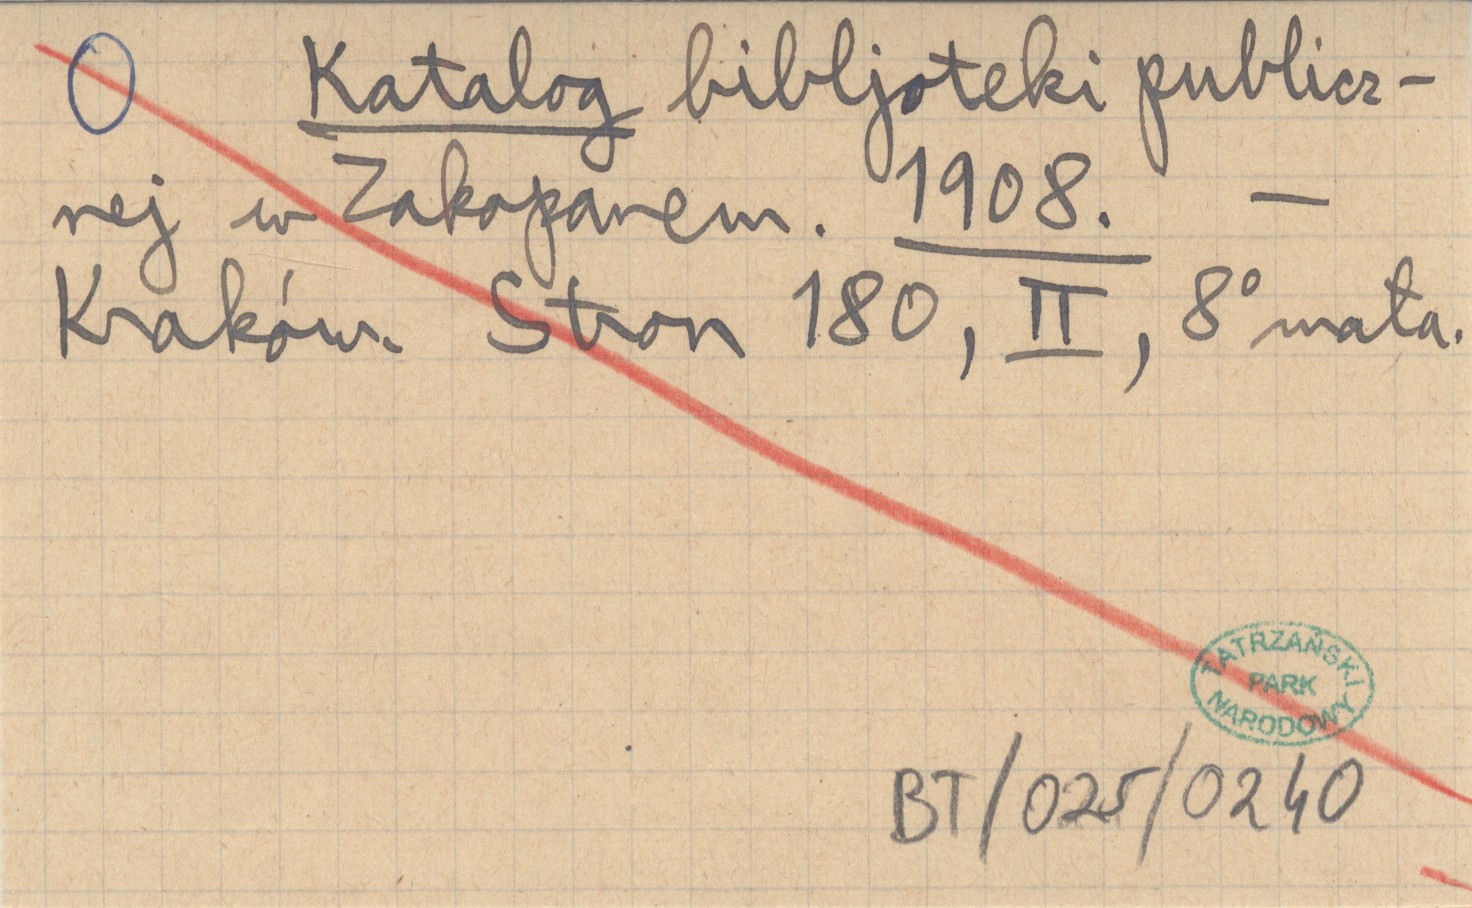 Katalog bibljoteki publicz-
nej w Zakopanem. 1908. —
Kraków. Stron 180, II, 8° mała.
TATRZAŃSKI
PARK
NARODOWY
BT/025/0240